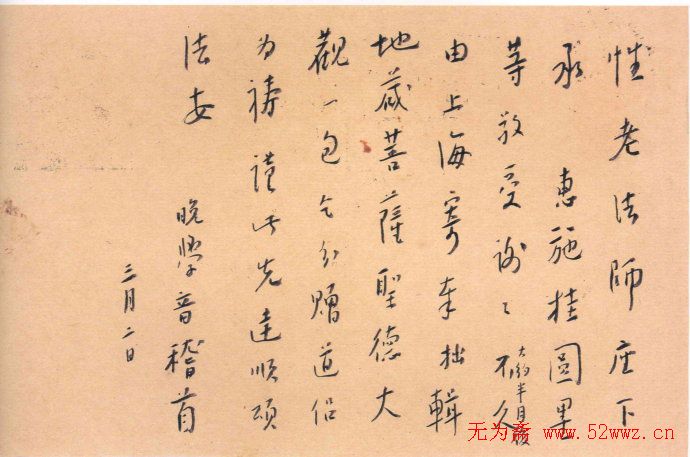 性老法師座下
承　惠施桂圓果
等敬受謝〻不久
大約半月後
由上海寄奉拙輯
地藏菩薩聖德大
觀一包乞分贈道侶
為禱謹此先達順頌
法安
晚學音稽首
三月二日
无为斋 www.52wwz.cn